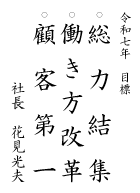 令和七年 目標
○ 総力結集
○ 働き方改革
○ 顧客第一
社長 花見光夫